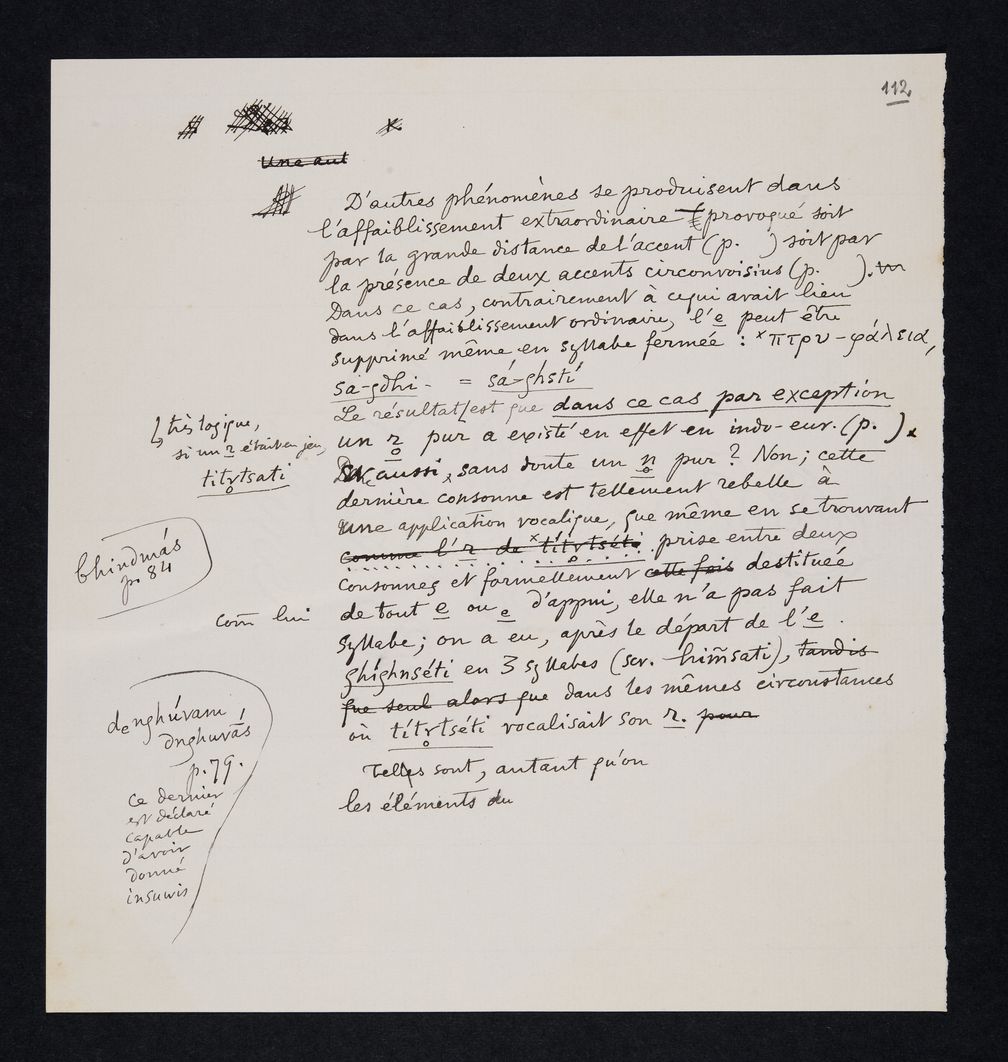 112
Une aut
D'autres phénomènes se produisent dans
l'affaiblissement extraordinaire provoqué soit
par la grande distance de l'accent (p. ) soit par
la présence de deux accents circonvoisins (p. ).
Dans ce cas, contrairement à ce qui avait lieu
dans l'affaiblissement ordinaire, l'e peut être
supprimé même en syllabe fermée : ˣπτρυ-φάλεια,
sa-gdhi- = sá-ghsti
Le résultat est que dans ce cas par exception
un r̥ pur a existé en effet en indo-eur. (p. ).
aussi, sans doute un n̥ pur ? Non ; cette
dernière consonne est tellement rebelle à
une application vocalique, que même en se trouvant
comme l'r de ˣtítr̥tséti prise entre deux
consonnes et formellement cette fois destituée
de tout e ou ₑ d'appui, elle n'a pas fait
syllabe ; on a eu, après le départ de l'e.
ghíghnséti en 3 syllabes (scr. him̃sati), tandis
que seul alors que dans les mêmes circonstances
où títr̥tséti vocalisait son r. pour
Telles sont, autant qu'on
les éléments du
très logique,
si un r était en jeu,
titr̥tsati
bhindmás
p. 84
com̄ lui
denghúvam,
ənghuvā́s
p. 79.
ce dernier
est déclaré
capable
d'avoir
donné
insuwis